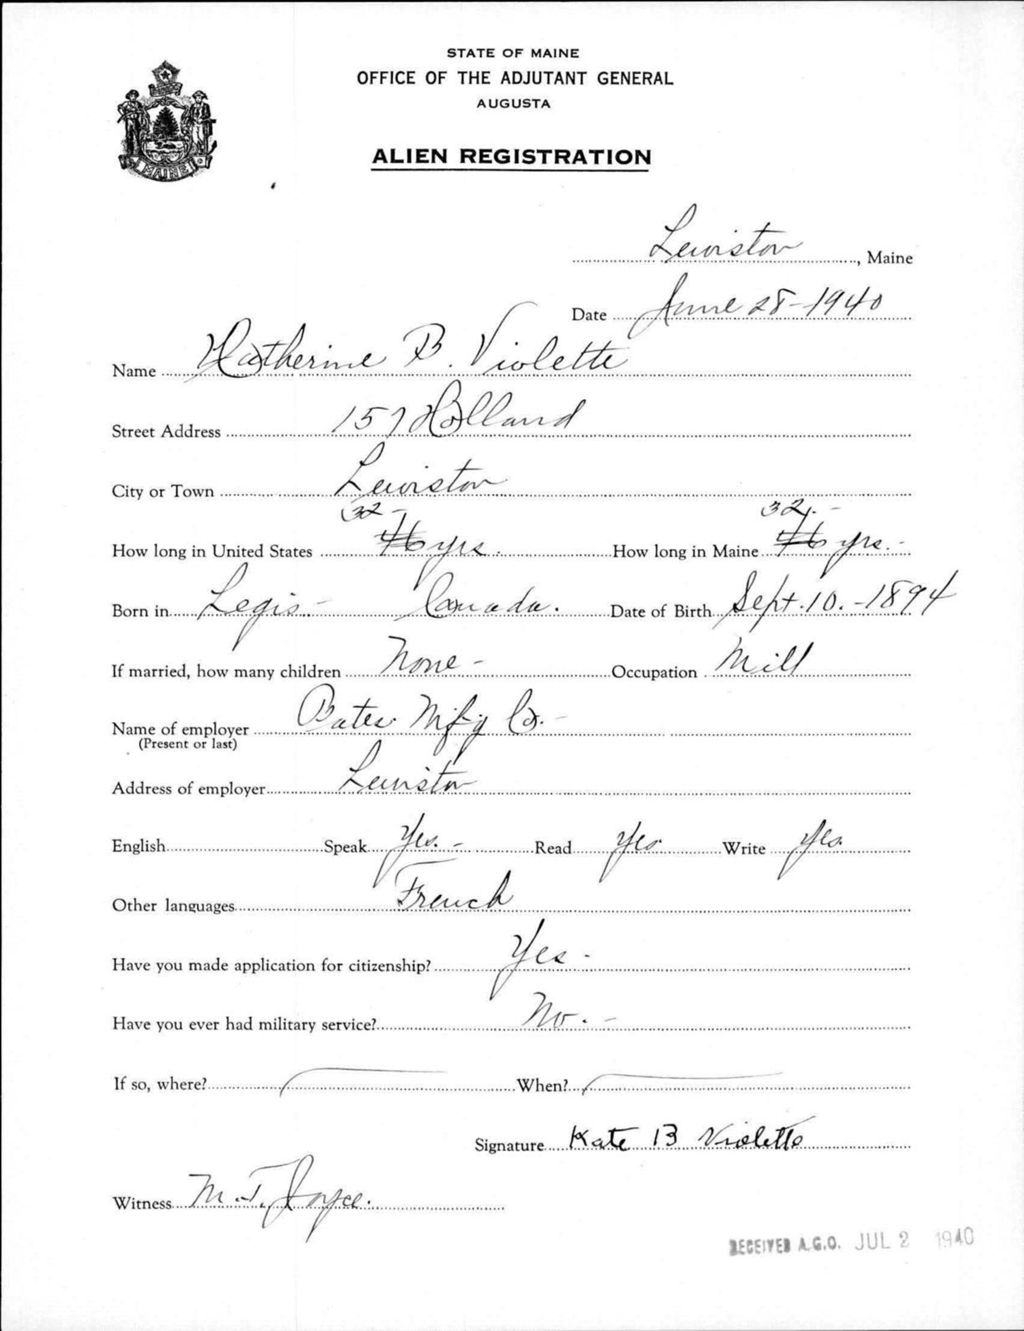 STATE OF MAINE
OFFICE OF THE ADJUTANT GENERAL
AUGUSTA
MAINE
ALIEN REGISTRATION
Lewiston, Maine
Date June 28-1940
Name Katherine B. Violette
Street Address 157 Holland
City or Town Lewiston
32 - 32. -
How long in United States 46 yrs. How long in Maine 46 yrs. -
Born in Legis - Canada. Date of Birth Sept. 10. - 1894
If married, how many children None - Occupation Mill
Name of employer Bates Mf'g Co. -
(Present or last)
Address of employer Lewiston
English Speak Yes. - Read Yes Write Yes
Other languages French
Have you made application for citizenship? Yes -
Have you ever had military service? No. -
If so, where? When?
Signature Kate B Violette
Witness M. T. Joyce.
RECEIVED A.G.O. JUL 2 1940